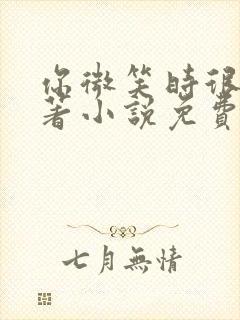 你微笑時很
著小說免費
七月無情